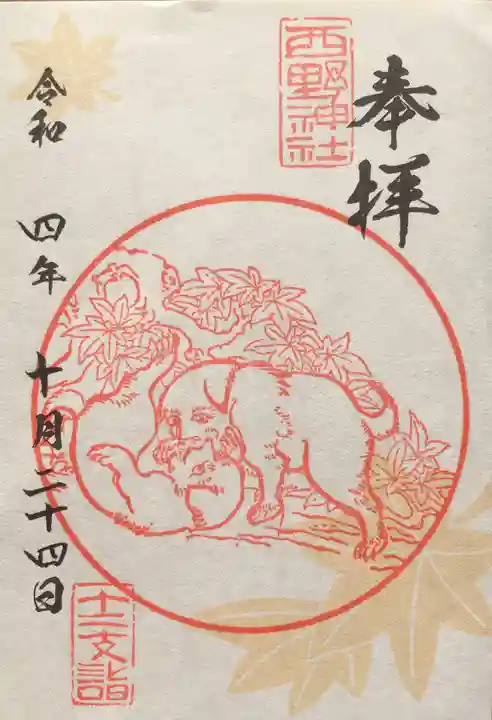 奉拝
西野神社
令和四年十月二十四日
十二支詣